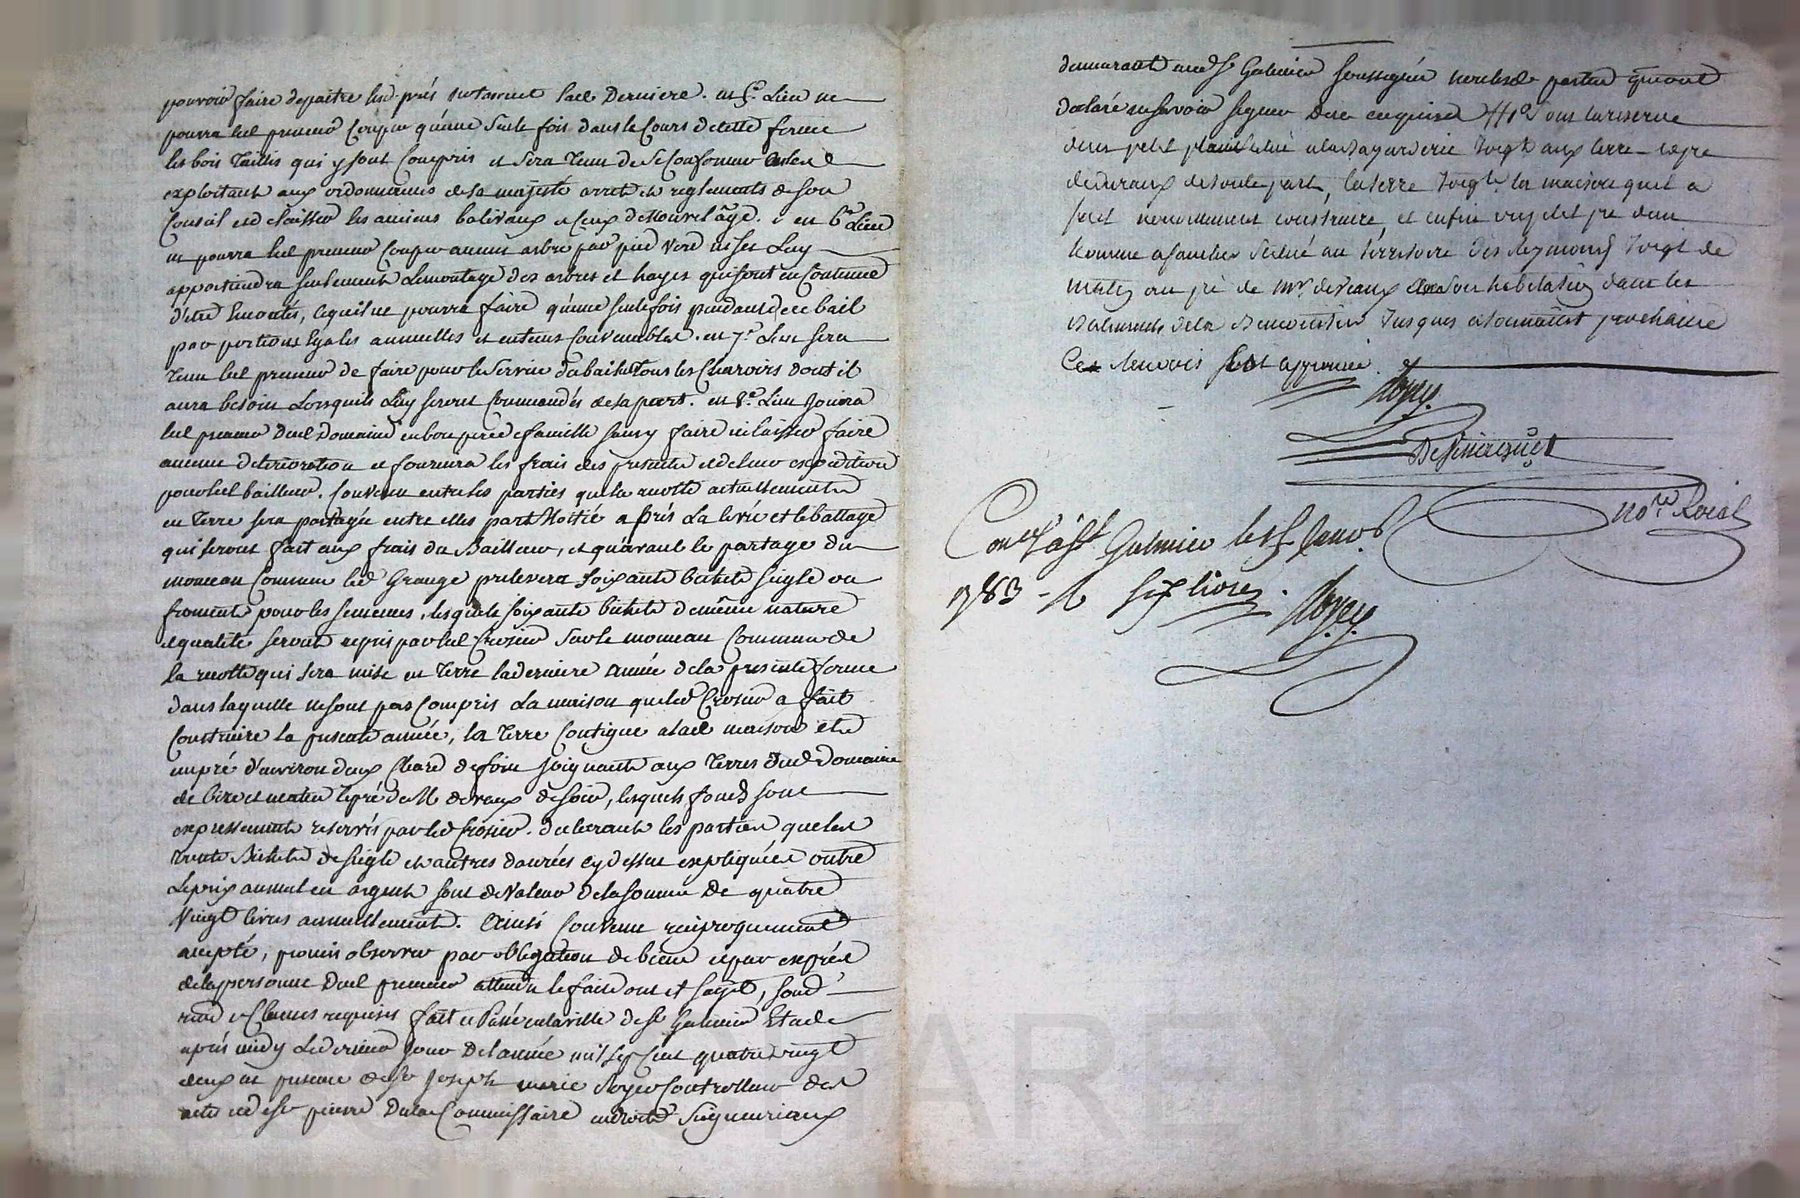 pouvoir faire depaitre les prés surtout lad. Derniere. en 5.e Lieu ne
pourra led. preneur Couper qu'une seule fois dans le Cours de cette ferme
les bois Taillis qui y sont Compris et sera Tenu de se Conformer en les
exploitant aux ordonnances de sa majesté arrets et reglements de son
Conseil et de laisser les anciens balivaux et ceux de Nouvel âge. en 6.e Lieu
ne pourra led. preneur Couper aucun arbre par pied Verd ni sec Luy
appartiendra seulement Lemontage des arbres et hayes qui sont en Coutume
d'etre Emontés, lequel il ne pourra faire qu'une seule fois pendant de ce bail
par portions Egales annuelles et en tems Convenables. en 7.e Lieu sera
Tenu led. preneur de faire pour le service du bailleur Tous les Charrois dont il
aura besoin Lorsquils Luy seront Commandés de sa part. en 8.e Lieu Jouira
led. preneur dud. Domaine en bon pere de famille sans y faire ni laisser faire
aucune deterioration et fournira les frais des presentes et de leur expedition
pour led. bailleur. Convenu entre les parties que la recolte actuellement
en Terre sera partagée entre elles par Moitié après La levée et le battage
qui seront fait aux frais du Bailleur, et qu'avant le partage du
monceau Commun led. Grange prelevera soixante bichets seigle ou
froment pour les semences, lesquels soixante bichets de même nature
et qualité seront repris par led. Crosier sur le monceau Commun de
la recolte qui sera mise en Terre la derniere année de la presente ferme
dans laquelle ne sont pas Compris La maison que led. Crosier a fait
Construire la presente année, la Terre Contigue a lad. maison et
un pré d'environ deux Chard de foin joignant aux Terres dud. Domaine
de bize et matin le pré de M. devaux de soir, lesquels fonds sont
expressement reservés par led. Crosier. declarant les parties que les
trente Bichets de seigle et autres danrées cy dessus expliquées outre
Le prix annuel en argent sont de Valeur de la somme De quatre
Vingt livres annuellement. Ainsi Convenu reciproquement
accepté, promis observer par obligation de biens et par exprès
de la personne dud. preneur attendu le fait dont il s'agit, soud.
renon. et Clauses requises fait et Passé en la ville de St Galmier Etude
après midy Le dernier Jour De l'année mil sept Cent quatre vingt
deux en presence de Sr Joseph marie Royer Controlleur des
actes et de Sr pierre Dulac Commissaire en droits Seigneuriaux
demeurant aud. St Galmier soussignés non lesd. parties qui ont
declaré ne savoir signer De ce enquises // sous la reserve
d'un petit situé joigt aux terre
de devaux de toute part, la terre joigt la maison quil a
fait nouvellement construire, et enfin un petit pré d'un
homme a faucher situé au territoire des Reymond joigt de
matin au pré de Mr. devaux son habitation dans les
batiments de la jusques a la toussaint prochaine
Ce Renvois fait approuvé.
Royer
Desmarquest
No.re Roial
Con.lé à St Galmier le 1783
R six livres.
Royer